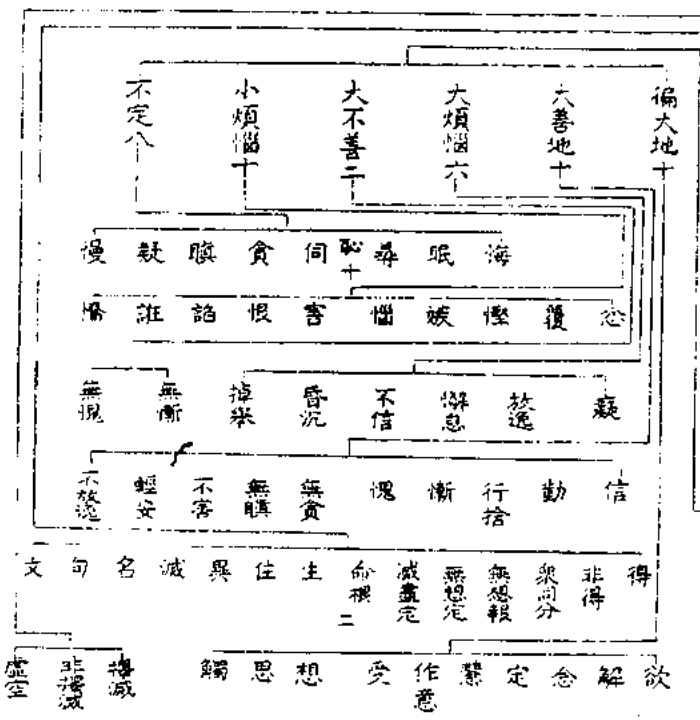 偏大地十
大善地十
大煩惱六
大不善二
小煩惱十
不定八
悔 眠 尋 恥十 伺 貪 瞋 疑 慢
忿 覆 慳 嫉 惱 害 恨 諂 誑 憍
癡 放逸 懈怠 不信 昏沉 掉舉 無慚 無愧
信 勤 行捨 慚 愧 無貪 無瞋 不害 輕安 不放逸
得 非得 眾同分 無想報 無想定 滅盡定 命根 二 生 住 異 滅 名 句 文
欲 解 念 定 慧 作意 受 想 思 觸 擇滅 非擇滅 虛空